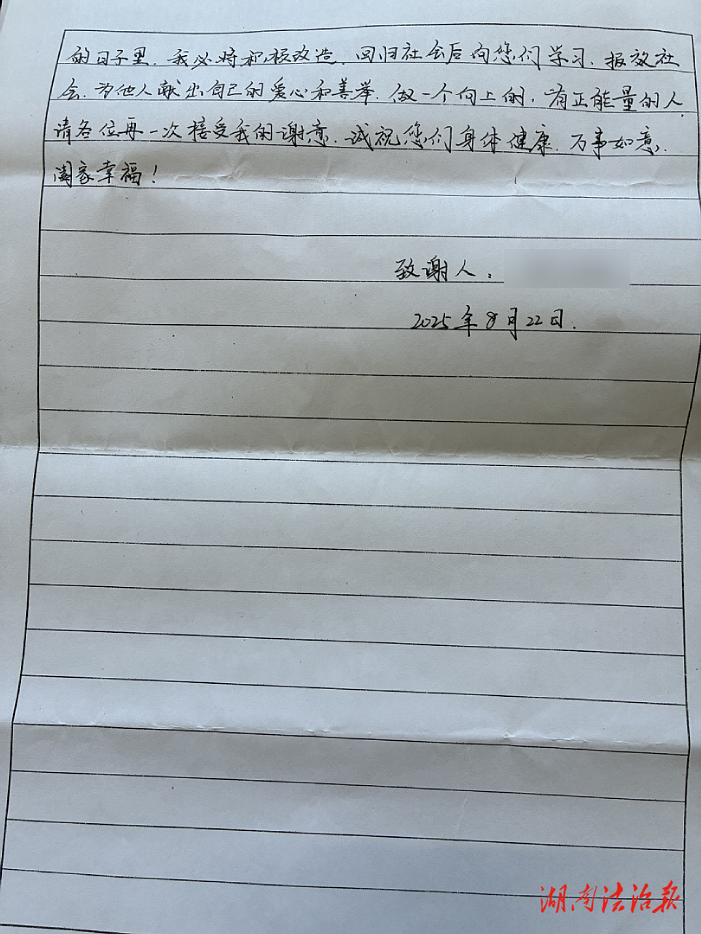 的日子里，我必将积极改造，回归社会后向您们学习，报效社
会，为他人献出自己的爱心和善举，做一个向上的，有正能量的人
请各位再一次接受我的谢意，诚祝您们身体健康，万事如意，
阖家幸福！
致谢人：
2025年8月22日.
湖南法治报